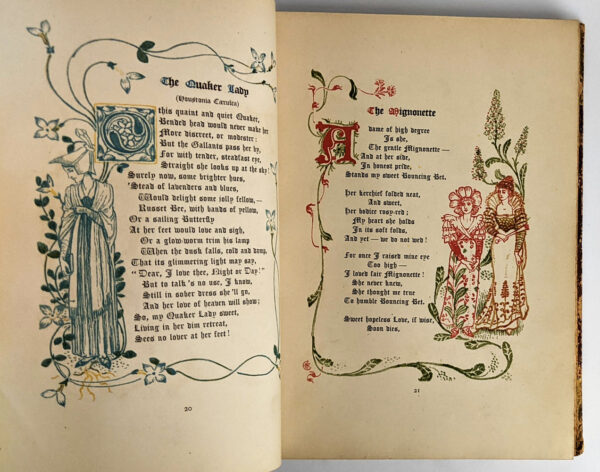 The Quaker Lady
(Houstonia Cærulea)
O this quaint and quiet Quaker,
Bended head would never make her
More discreet, or modester:
But the Gallants pass her by,
For with tender, steadfast eye,
Straight she looks up at the sky!
Surely now, some brighter hues,
'Stead of lavenders and blues,
Would delight some jolly fellow,—
Russet Bee, with bands of yellow,
Or a sailing Butterfly
At her feet would love and sigh,
Or a glow-worm trim his lamp
When the dusk falls, cold and damp,
That its glimmering light may say,
"Dear, I love thee, Night or Day!"
But to talk's no use, I know,
Still in sober dress she'll go,
And her love of heaven will show;
So, my Quaker Lady sweet,
Living in her dim retreat,
Sees no lover at her feet!
20
The Mignonette
A dame of high degree
Is she,
The gentle Mignonette—
And at her side,
In honest pride,
Stands my sweet Bouncing Bet.
Her kerchief folded neat,
And sweet,
Her bodice rosy-red;
My heart she holds
In its soft folds,
And yet—we do not wed!
For once I raised mine eye
Too high—
I loved fair Mignonette!
She never knew,
She thought me true
To humble Bouncing Bet.
Sweet hopeless Love, if wise,
Soon dies,
21